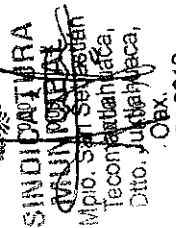 SINDICATURA
MUNICIPAL
Mpio. San Sebastián
Tecomaxtlahuaca,
Dtto. Juxtlahuaca,
Oax.